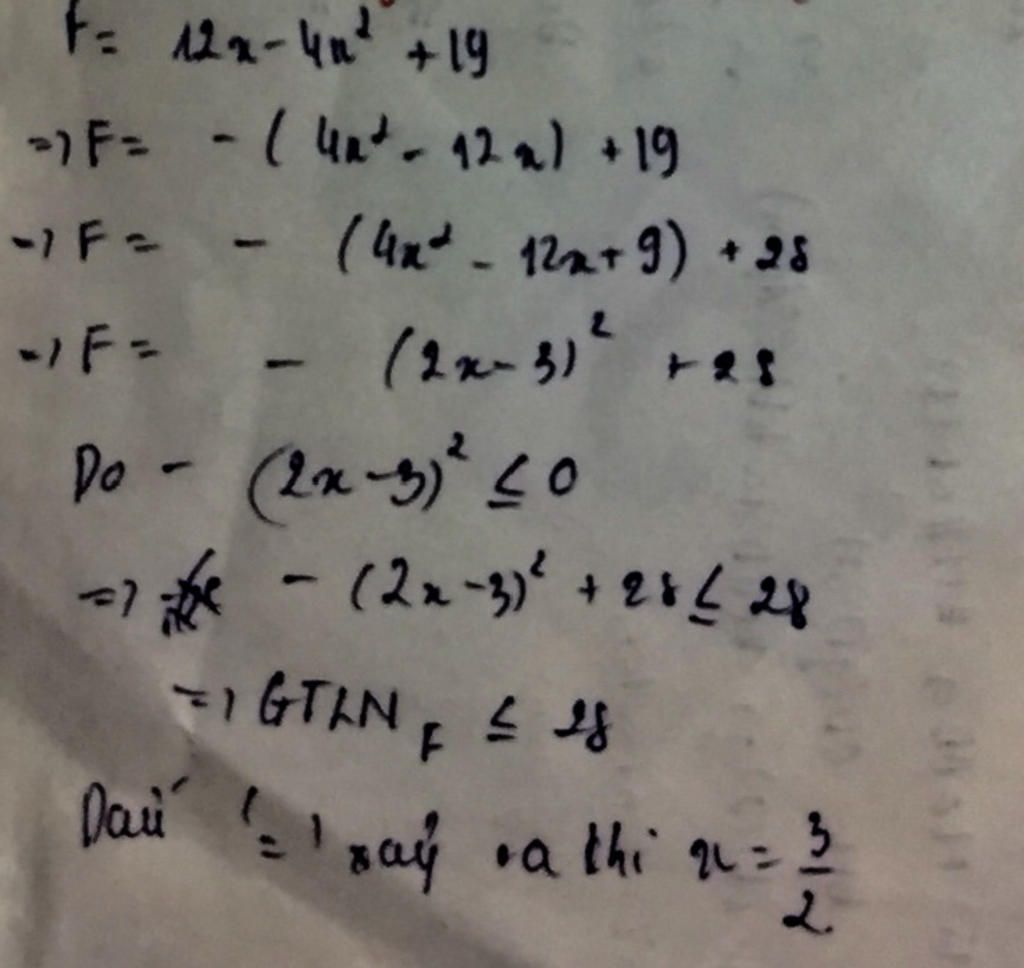 F = 12x - 4x² + 19
=> F = - (4x² - 12x) + 19
=> F = - (4x² - 12x + 9) + 28
=> F = - (2x - 3)² + 28
Do - (2x - 3)² ≤ 0
=> - (2x - 3)² + 28 ≤ 28
=> GTLN F ≤ 28
Dấu '=' xảy ra thì x = 3/2